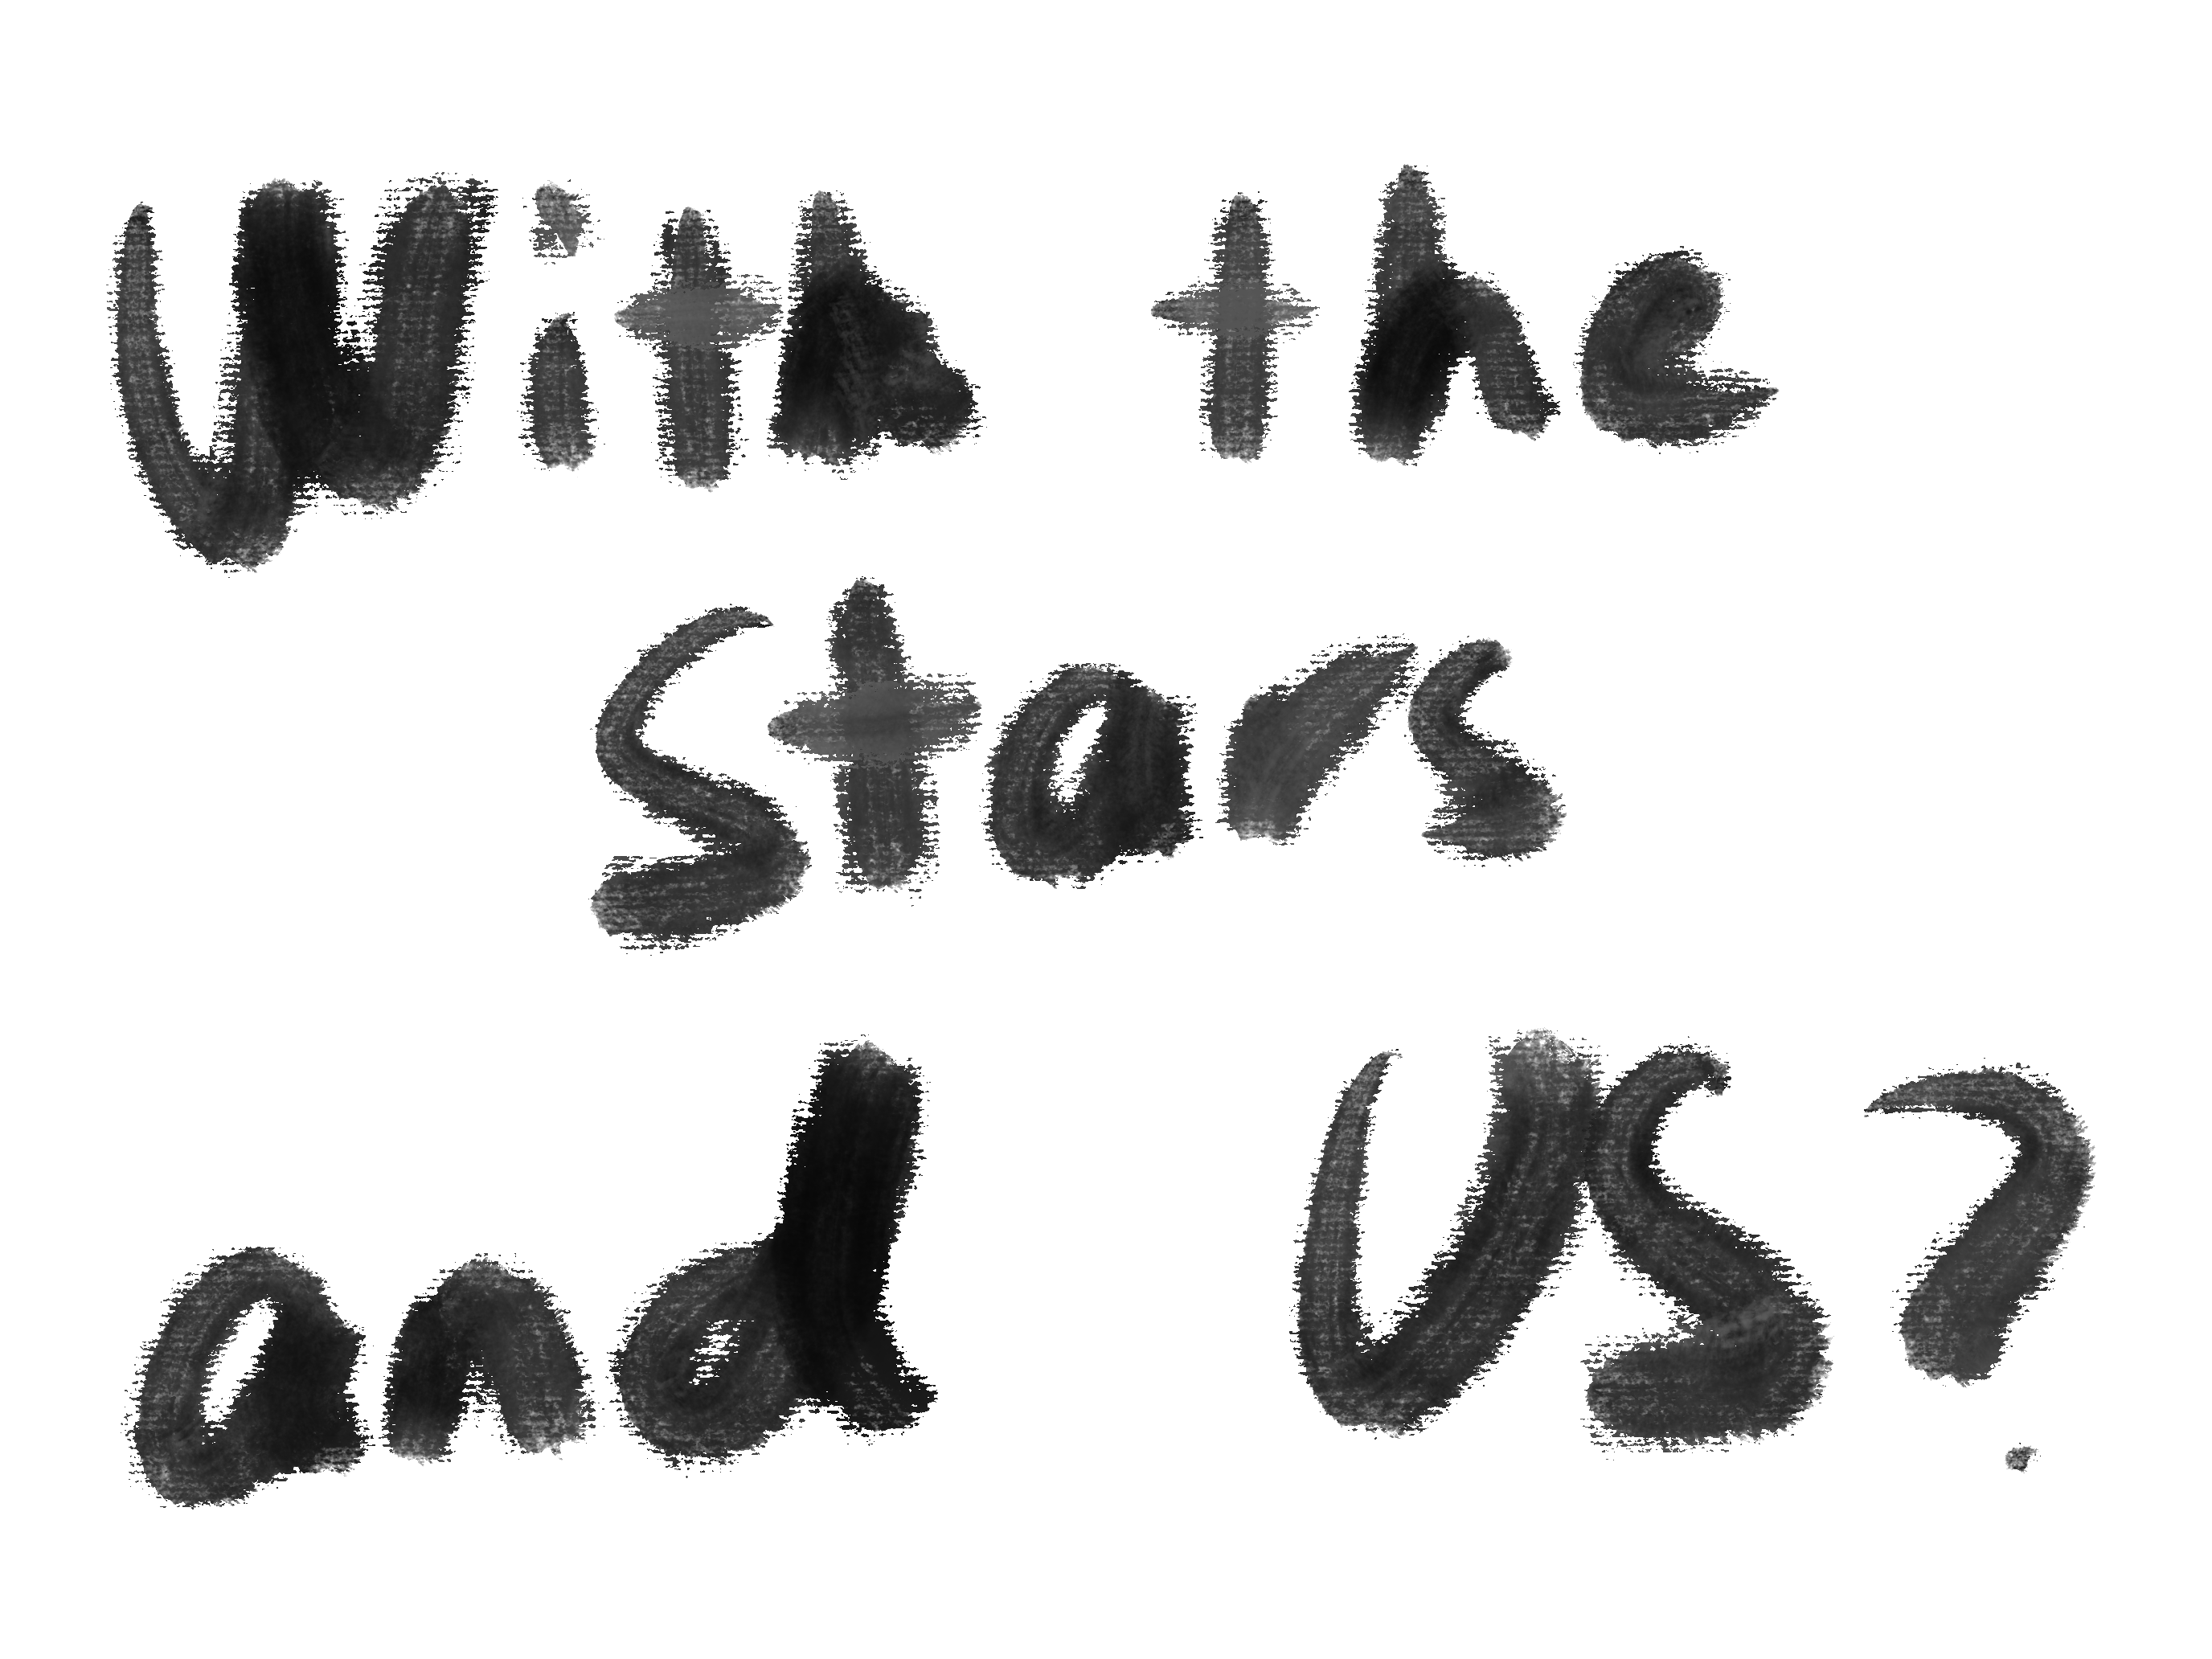 With the
Stars
and US?